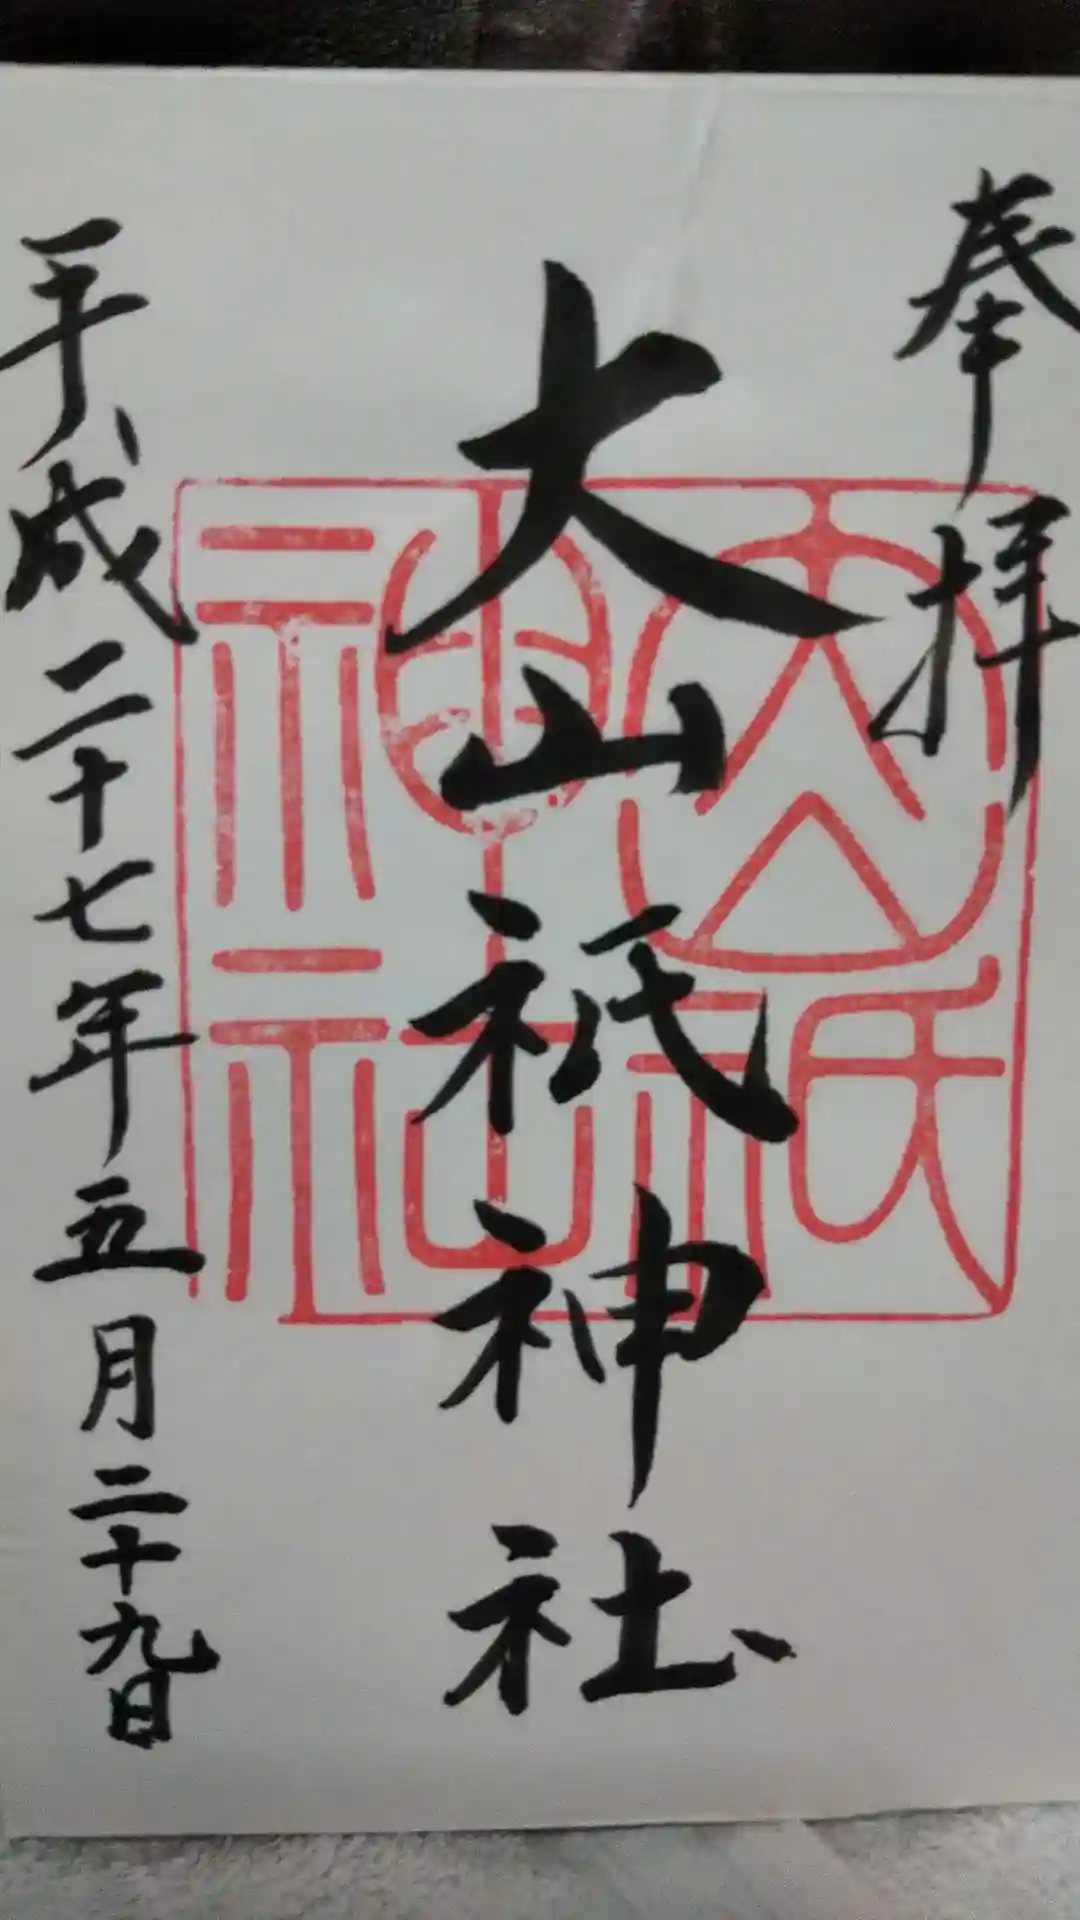 奉拝
大山祇神社
大山祇神社
平成二十七年五月二十九日